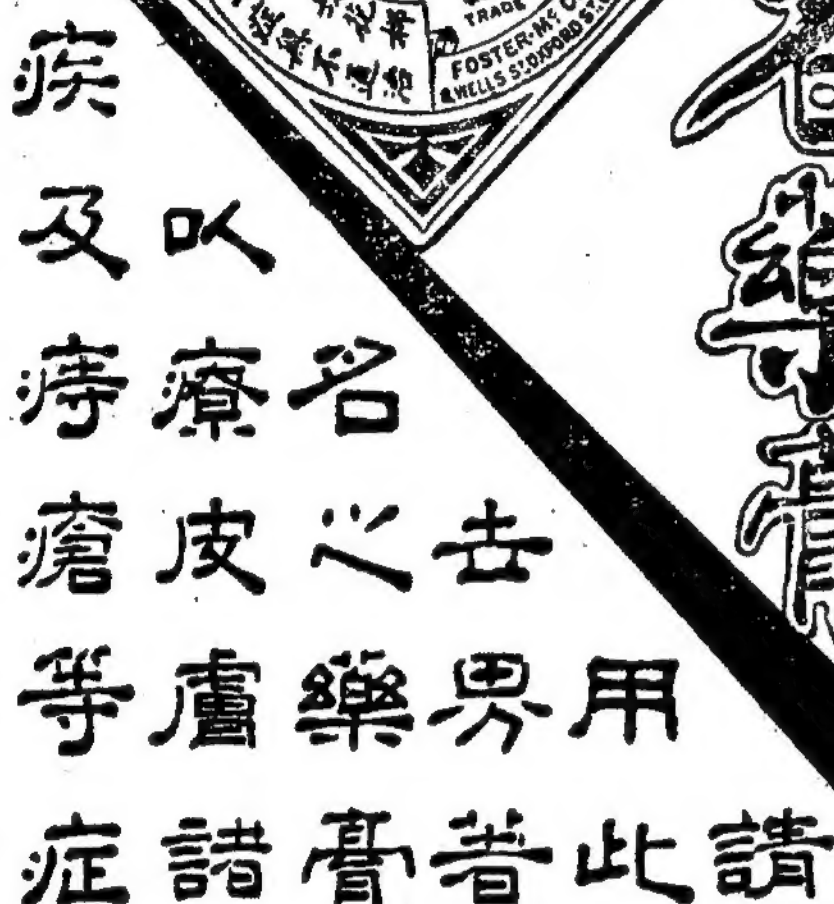 TRADE
FOSTER-Mc C
8 WELLS ST. OXFORD ST.
請
用此
世界著
名之藥膏
以療皮膚諸
疾及痔瘡等症